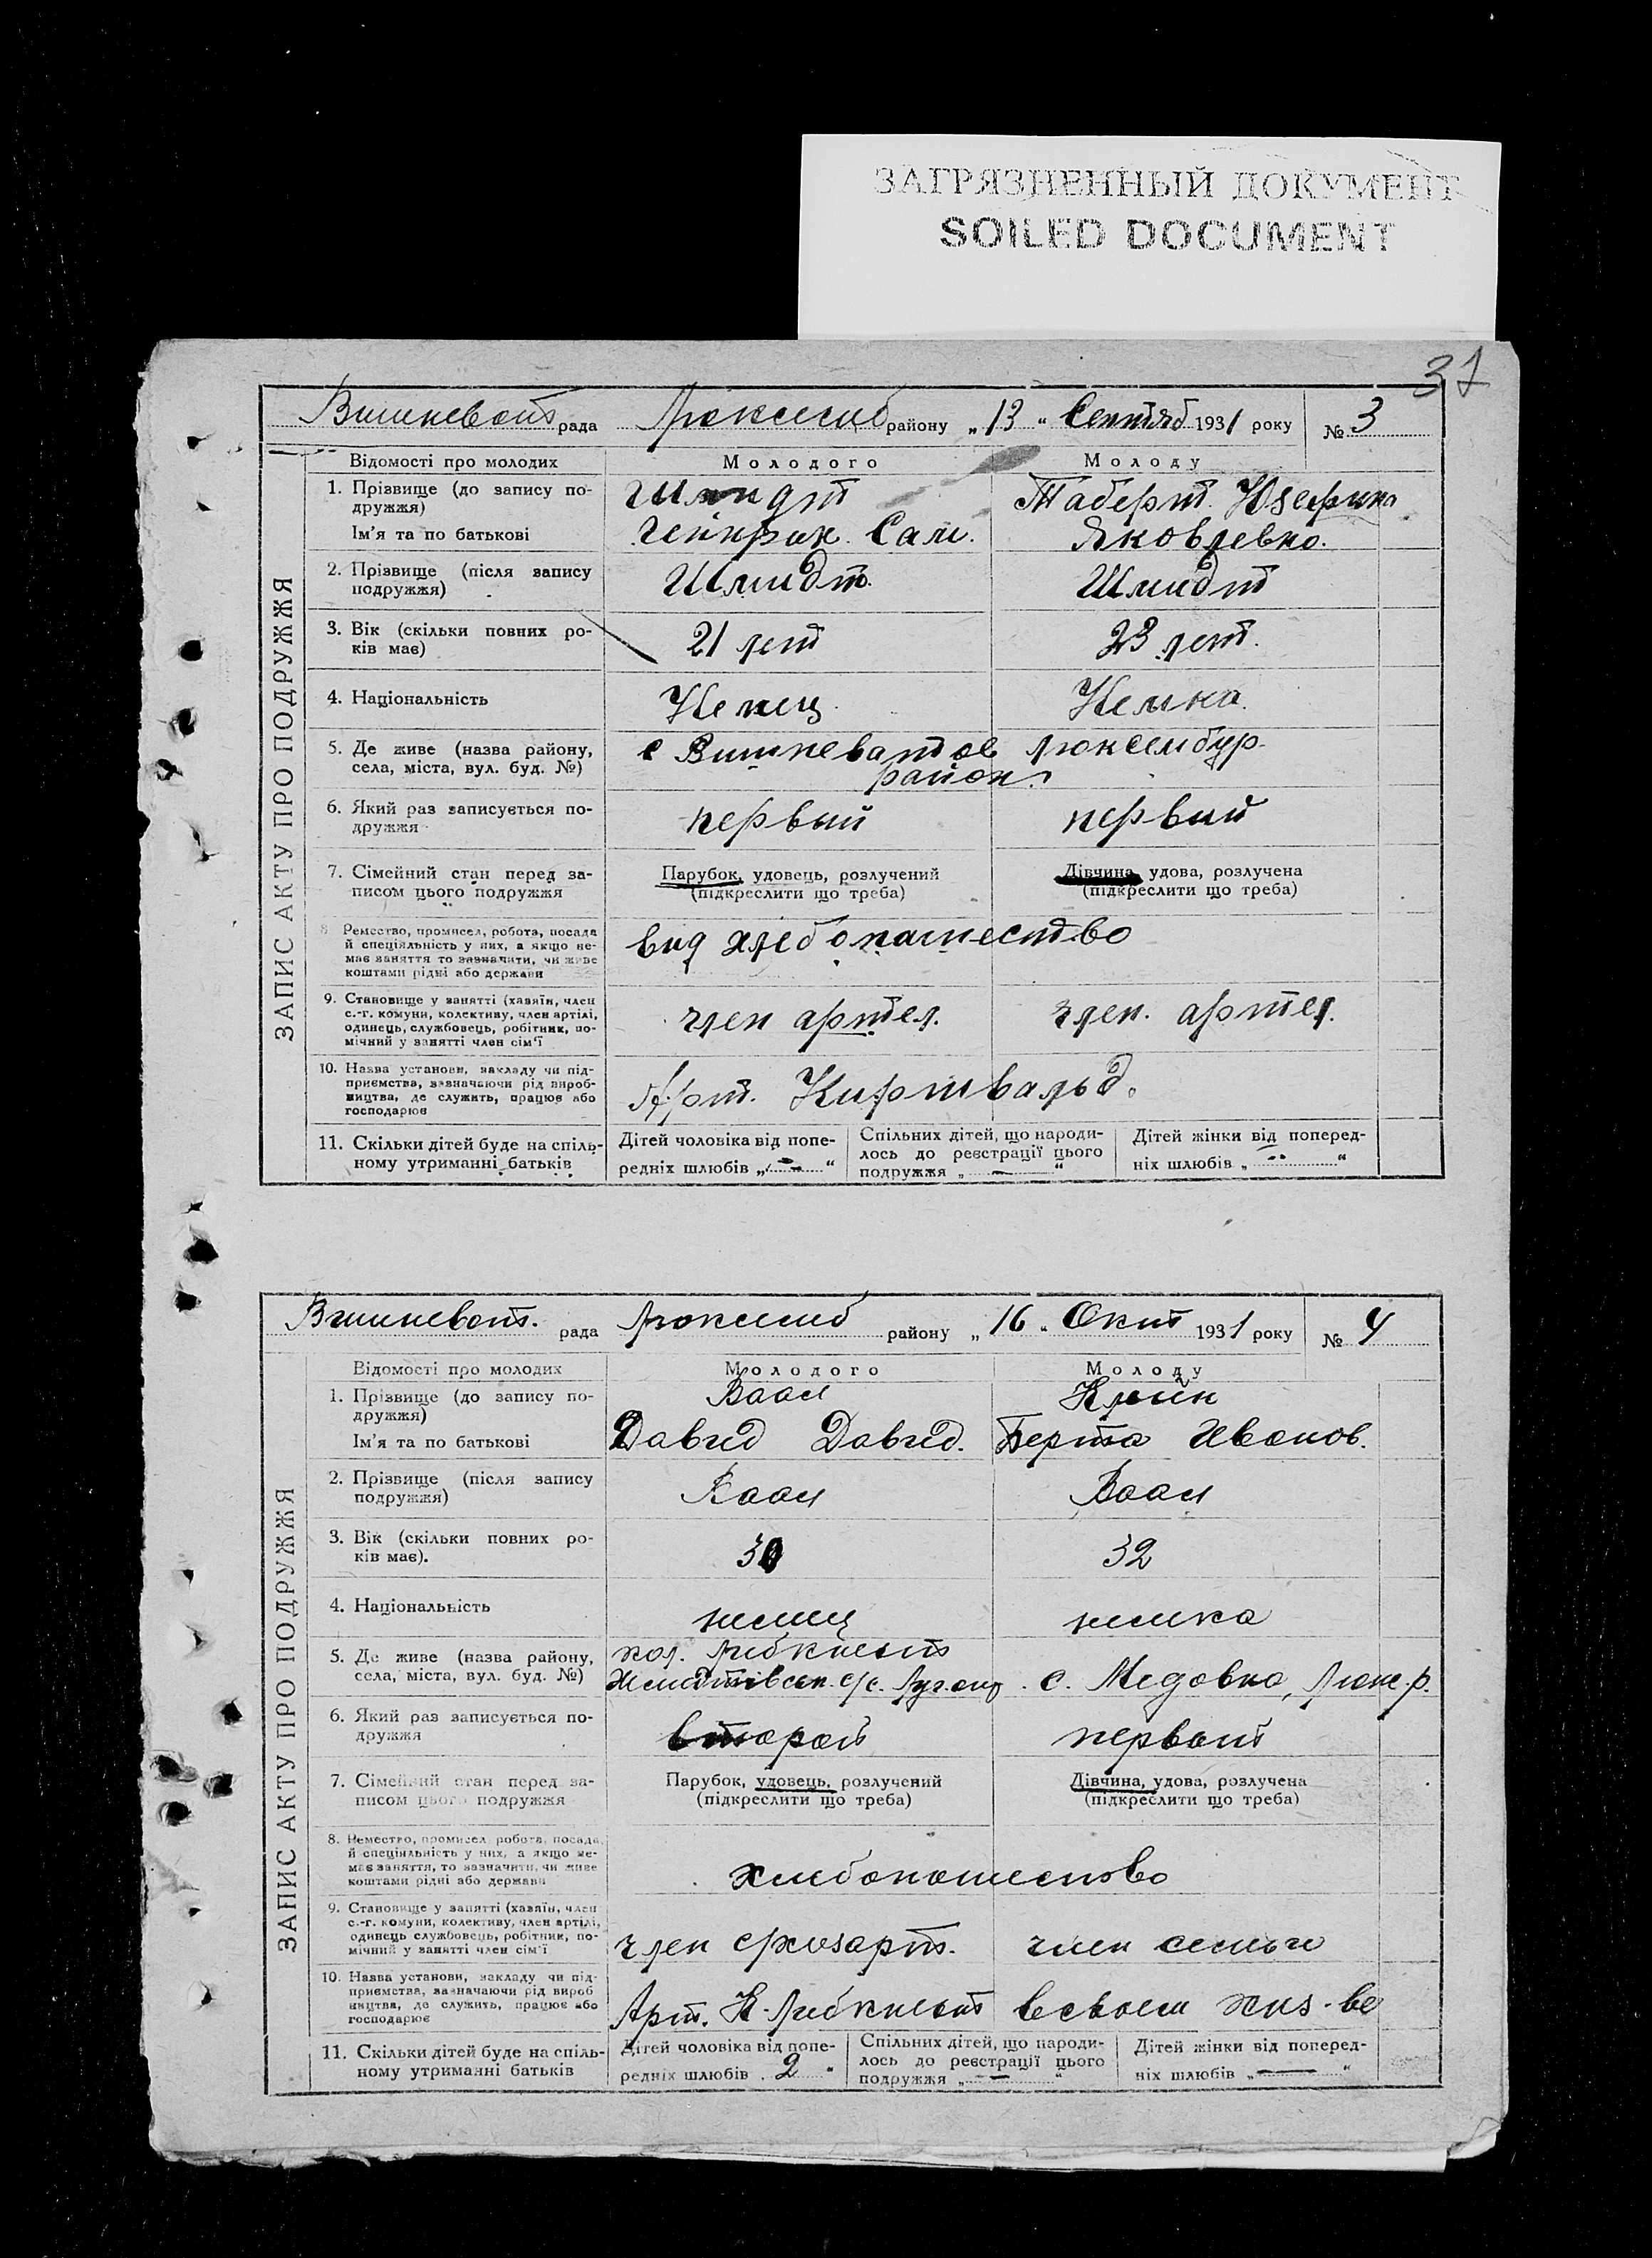 ЗАГРЯЗНЕННЫЙ ДОКУМЕНТ
SOILED DOCUMENT
37
Вишневат рада Люксемб району „13“ Сентяб 1931 року № 3
ЗАПИС АКТУ ПРО ПОДРУЖЖЯ
Відомості про молодих Молодого Молоду
1. Прізвище (до запису по- Шмидт Таберт Юзефина
дружжя)
Ім'я та по батькові Гейнрих Сам. Яковлевна.
2. Прізвище (після запису Шмидт Шмидт
подружжя)
3. Вік (скільки повних ро- 21 лет 23 лет.
ків має)
4. Національність Немец Немка.
5. Де живе (назва району, с Вишневатов Люксембур-
села, міста, вул. буд. №) район.
6. Який раз записується по- первый первый
дружжя
7. Сімейний стан перед за- Парубок, удовець, розлучений Дівчина, удова, розлучена
писом цього подружжя (підкреслити що треба) (підкреслити що треба)
8. Ремество, промисел, робота, посада
й спеціяльність у них, а якщо не- хлебопашество
має заняття то зазначити, чи живе
коштами рідні або держави
9. Становище у занятті (хазяїн, член
с.-г. комуни, колективу, член артілі, член артел. член. артел.
одинець, службовець, робітник, по-
мічний у занятті член сім'ї
10. Назва установи, закладу чи під-
приємства, зазначаючи рід вироб- Арт. Киршвальд.
ництва, де служить, працює або
господарює
11. Скільки дітей буде на спіль- Дітей чоловіка від попе- Спільних дітей, що народи- Дітей жінки від поперед-
ному утриманні батьків редніх шлюбів „—“ лось до реєстрації цього ніх шлюбів „—“
подружжя „—“
Вишневат. рада Люксемб району „16“ Окт 1931 року № 4
ЗАПИС АКТУ ПРО ПОДРУЖЖЯ
Відомості про молодих Молодого Молоду
1. Прізвище (до запису по- Ваал Клейн
дружжя)
Ім'я та по батькові Давид Давид. Берта Иванов.
2. Прізвище (після запису Ваал Ваал
подружжя)
3. Вік (скільки повних ро- 30 32
ків має).
4. Національність немец немка
5. Де живе (назва району, кол. Либкнехт
села, міста, вул. буд. №) с/с. Луг. окр. с. Медовка, Люкс. р.
6. Який раз записується по- второй первый
дружжя
7. Сімейний стан перед за- Парубок, удовець, розлучений Дівчина, удова, розлучена
писом цього подружжя (підкреслити що треба) (підкреслити що треба)
8. Ремество, промисел, робота, посада,
й спеціяльність у них, а якщо не-
має заняття, то зазначити, чи живе хлебопашество
коштами рідні або держави
9. Становище у занятті (хазяїн, член
с.-г. комуни, колективу, член артілі,
одинець службовець, робітник, по- член с/хозарт. член семьи
мічний у занятті член сім'ї
10. Назва установи, закладу чи під-
приємства, зазначаючи рід вироб
ництва, де служить, працює або Арт. К. Либкнехт в своем хоз-ве
господарює
11. Скільки дітей буде на спіль- Дітей чоловіка від попе- Спільних дітей, що народи- Дітей жінки від поперед-
ному утриманні батьків редніх шлюбів „2“ лось до реєстрації цього ніх шлюбів „—“
подружжя „—“